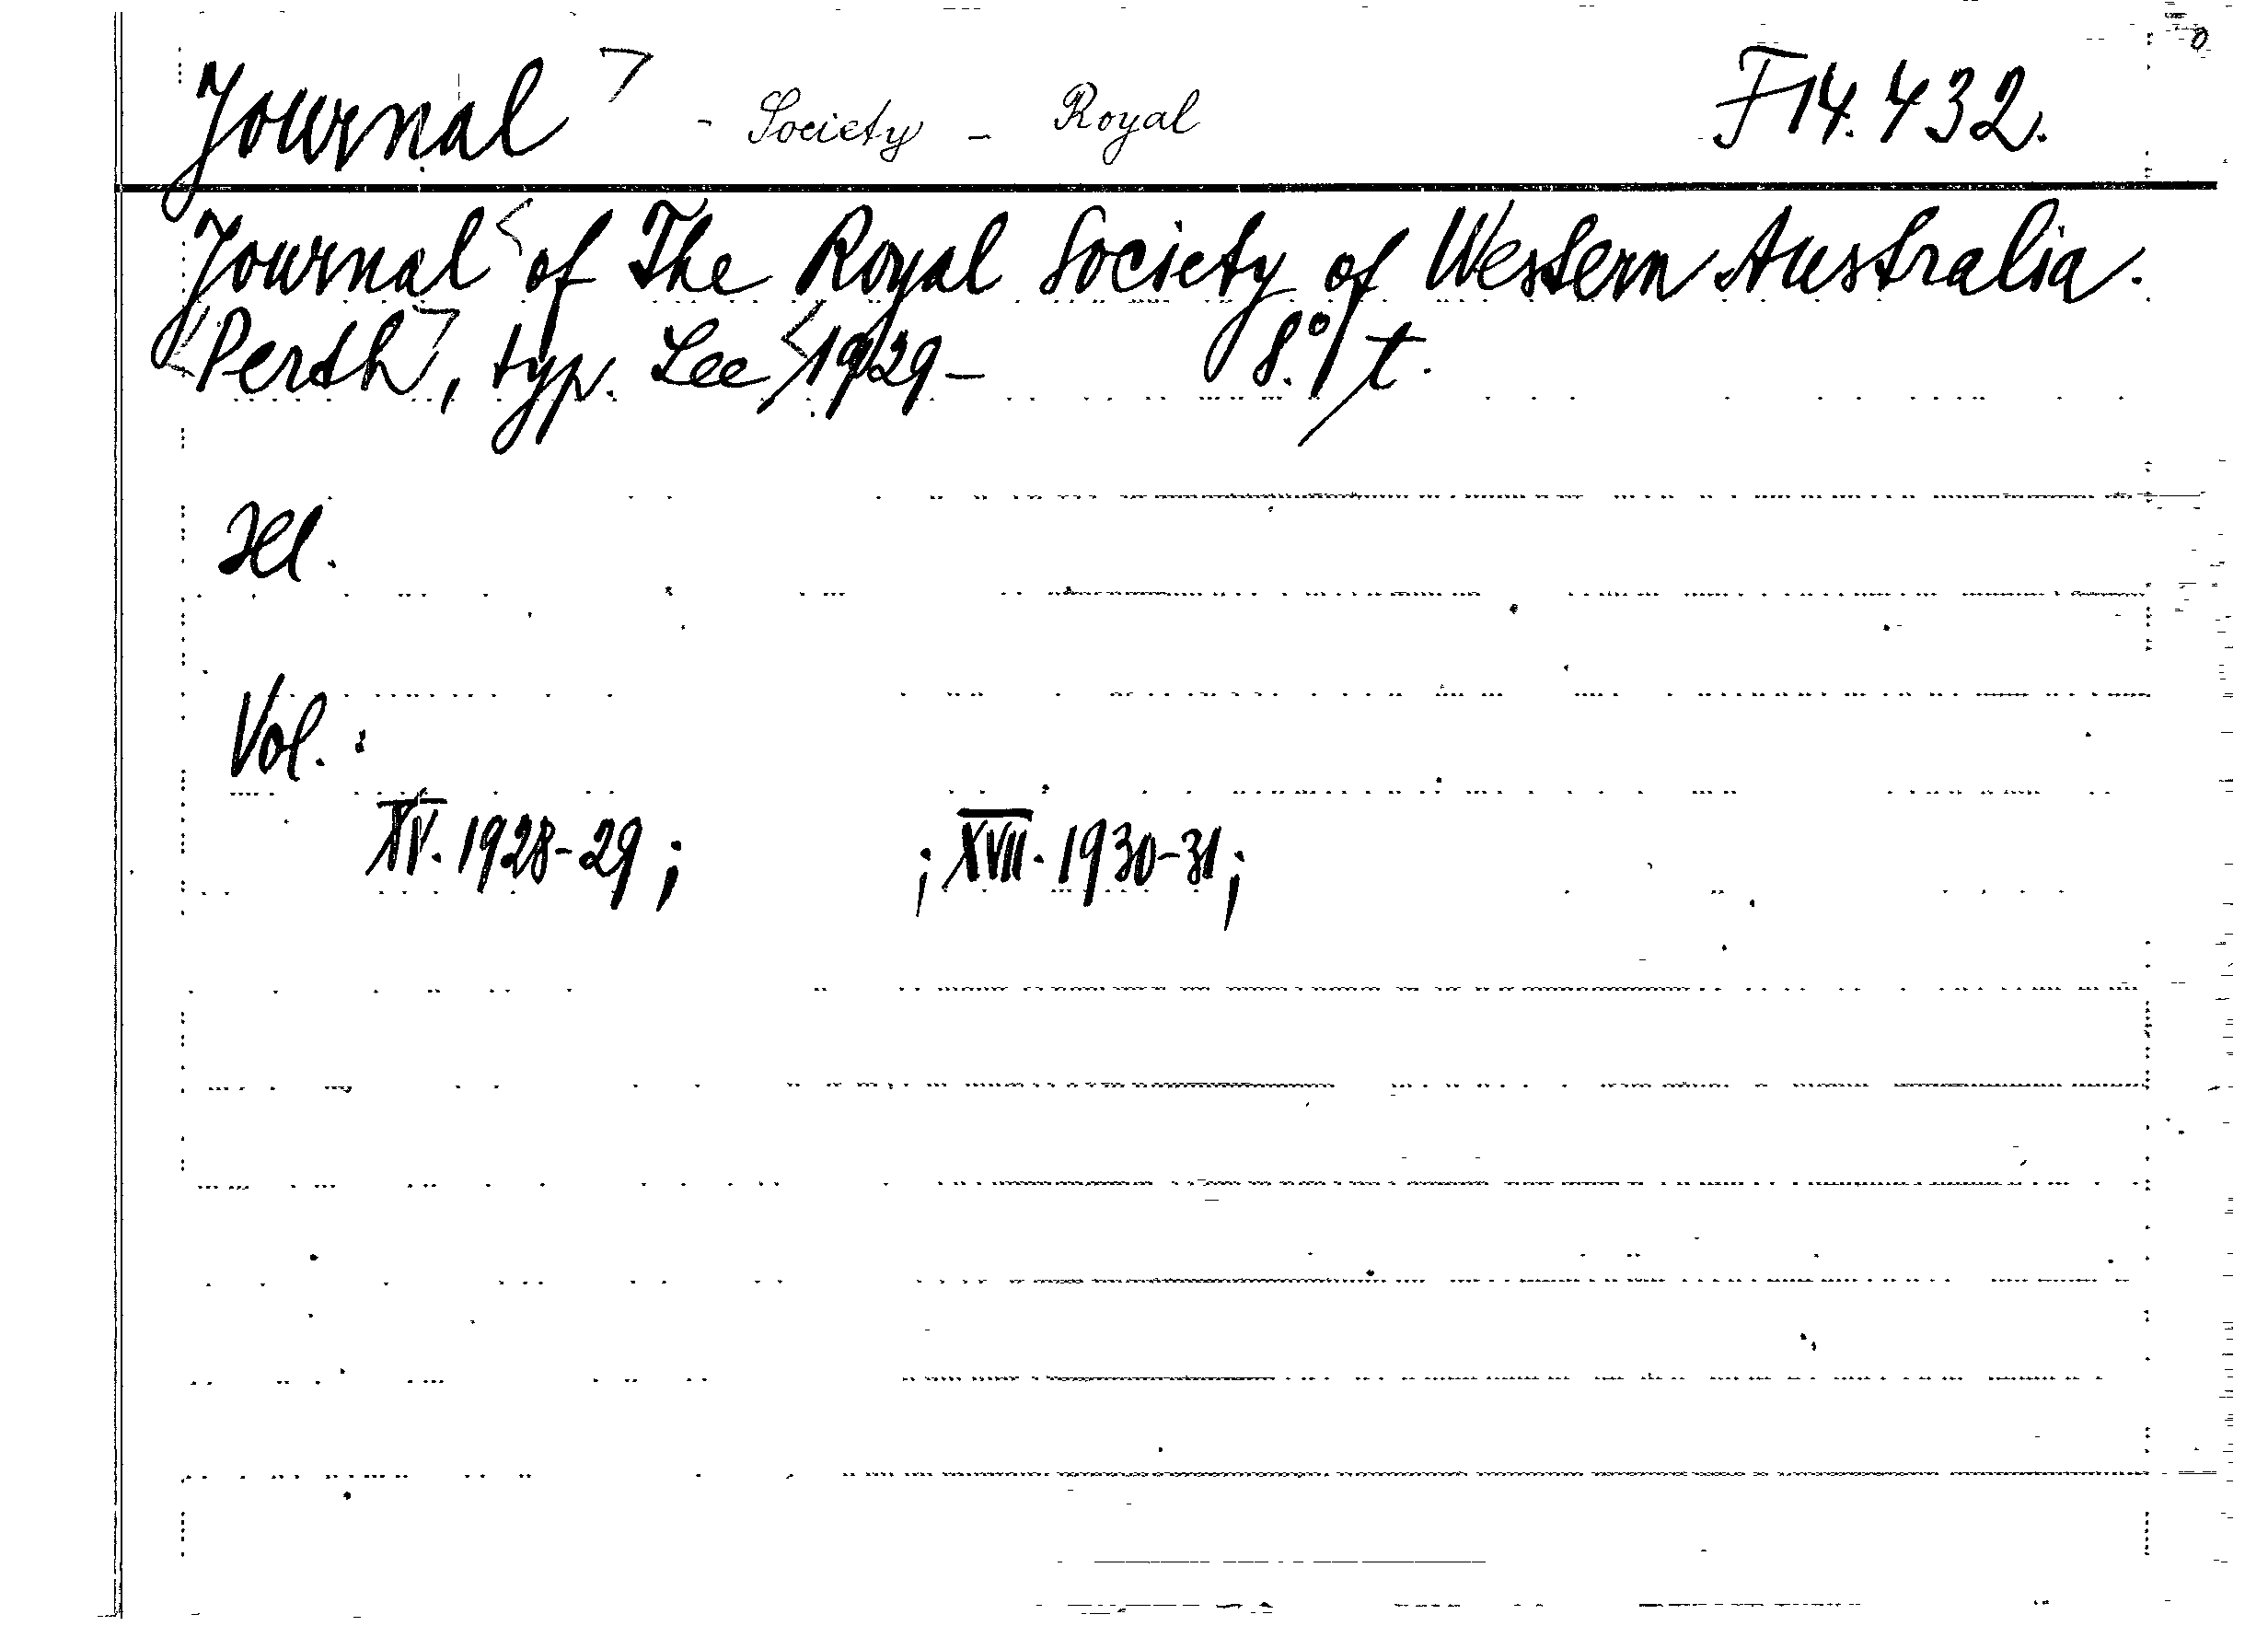 Journal - Society - Royal F 14.432.
Journal of The Royal Society of Western Australia.
Perth, typ. Lee 1929- 8.° t.
Ill.
Vol. :
XV. 1928-29; ; XVII. 1930-31;